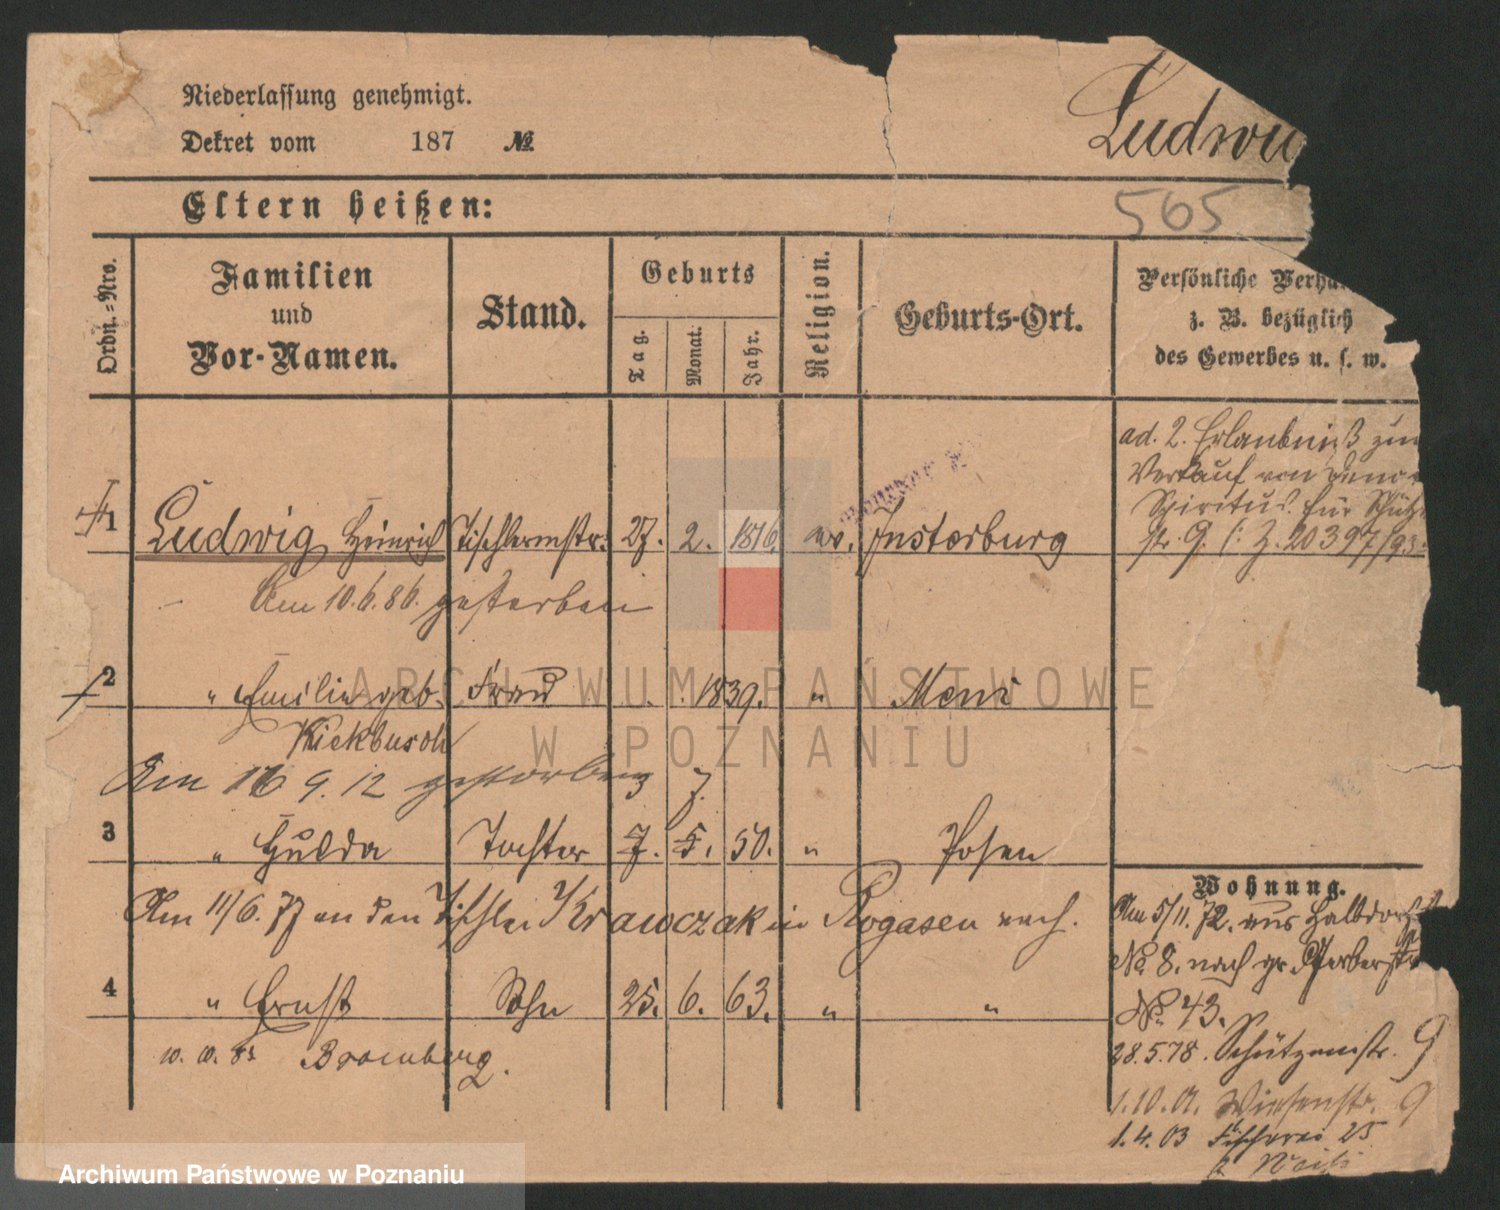 Niederlassung genehmigt.
Dekret vom 187 №
Ludwi
Eltern heißen:
565
Ordn.-Nro.
Familien
und
Vor-Namen.
Stand.
Geburts
Tag.
Monat.
Jahr.
Religion.
Geburts-Ort.
Persönliche Verhä
z. B. bezüglich
des Gewerbes u. s. w.
ad. 2. Erlaubniß zum
Verkauf von
Spiritus. für Schütz
str. 9. (: Z. 20397/93.
1 Ludwig Heinrich Tischlermstr. 27. 2. 1816. ev. Insterburg
Am 10.6.86. gestorben
2 " Emilie geb. Frau . . 1839. " Mewe
Kiekbusch
Am 16 9. 12 gestorben
3 " Hulda Tochter 7. 5. 50. " Posen
Am 11/6. 77 an den Tischler Krawczak in Rogasen verh.
4 " Ernst Sohn 25. 6. 63. " "
10. 10. 83 Bromberg.
Wohnung.
Am 5/11. 72. aus Halbdorfst
No. 8. nach gr. Gerberstr
No. 43.
28.5.78. Schützenstr. 9
1.10.01. Wiesenstr. 9
1.4.03 Fischerei 25
ARCHIWUM PAŃSTWOWE
W POZNANIU
Archiwum Państwowe w Poznaniu